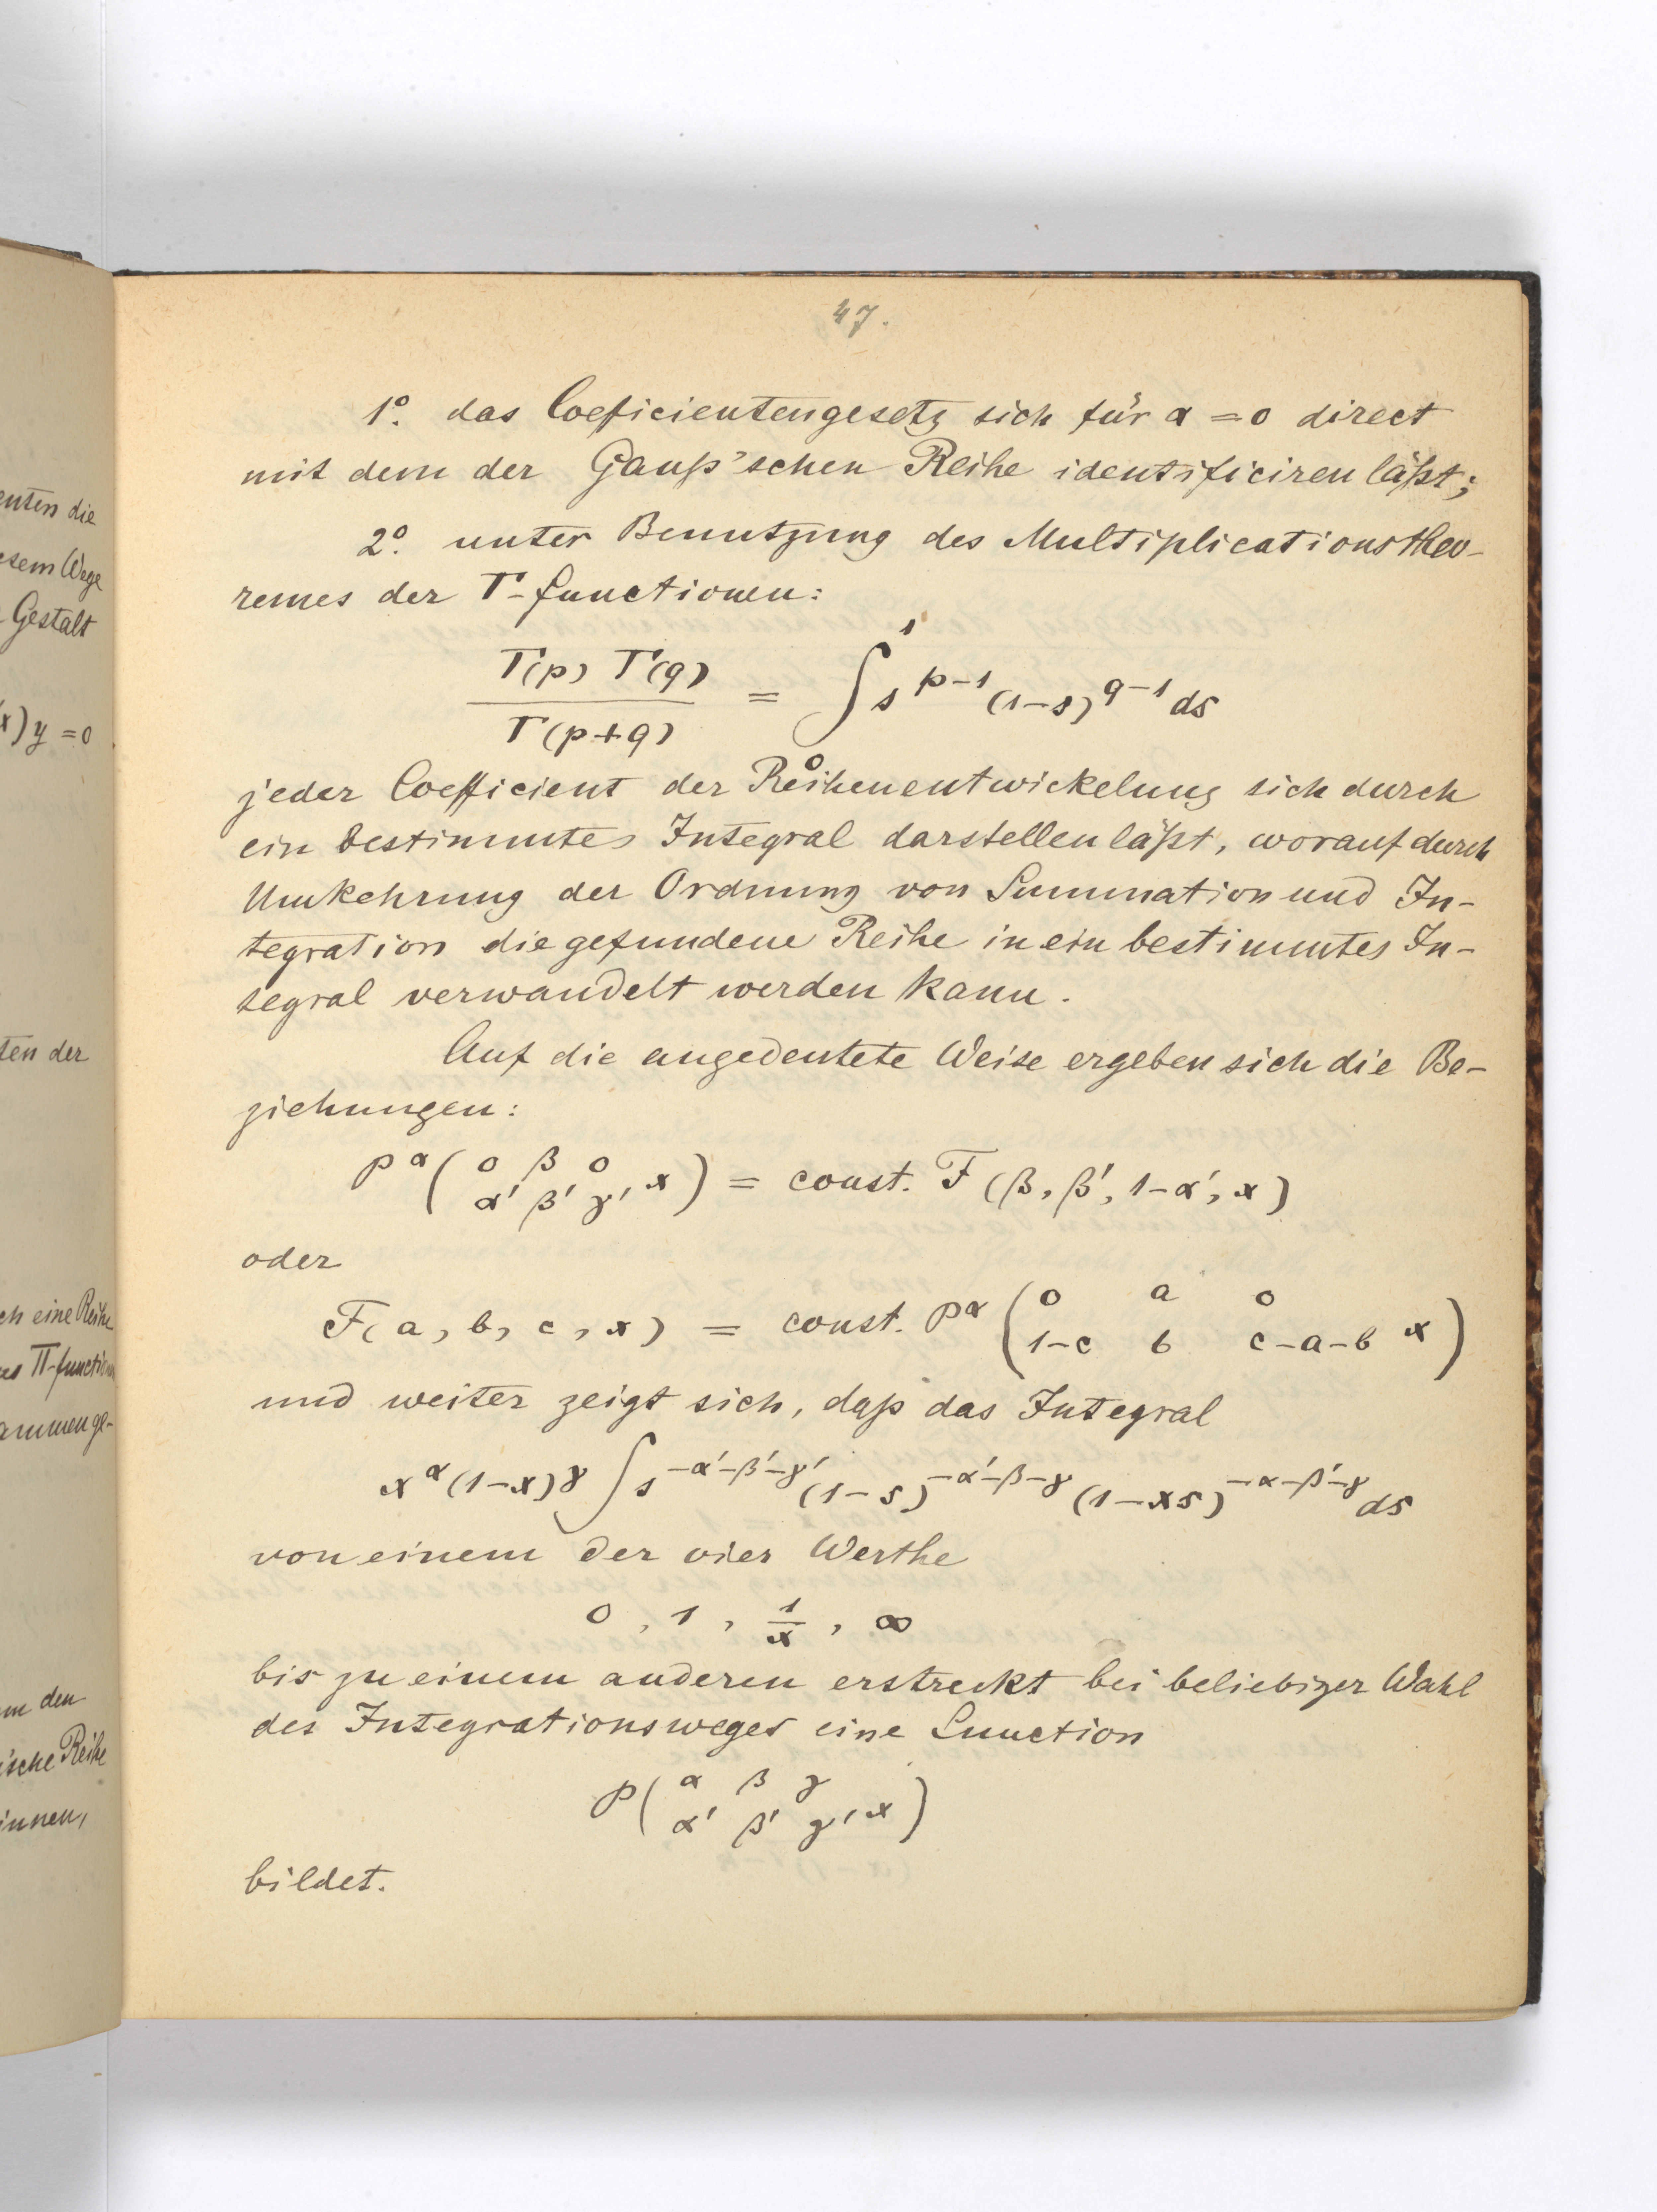 47.
1º. das Coeficientengesetz sich für α = 0 direct
mit dem der Gauß'schen Reihe identificiren läßt;
2º. unter Benutzung des Multiplicationstheo-
remes der Γ-functionen:
Γ(p) Γ(q) / Γ(p+q) = ∫₀¹ s^{p-1} (1-s)^{q-1} ds
jeder Coefficient der Reihenentwickelung sich durch
ein bestimmtes Integral darstellen läßt, worauf durch
Umkehrung der Ordnung von Summation und In-
tegration die gefundene Reihe in ein bestimmtes In-
tegral verwandelt werden kann.
Auf die angedeutete Weise ergeben sich die Be-
ziehungen:
P^α ( 0 β 0 / α' β' γ' x ) = const. F (β, β', 1-α', x)
oder
F(a, b, c, x) = const. P^α ( 0 a 0 / 1-c b c-a-b x )
und weiter zeigt sich, daß das Integral
x^α (1-x)^γ ∫ s^{-α'-β'-γ'} (1-s)^{-α'-β-γ} (1-xs)^{-α-β'-γ} ds
von einem der vier Werthe
0, 1, 1/x, ∞
bis zu einem anderen erstreckt bei beliebiger Wahl
des Integrationsweges eine Function
P ( α β γ / α' β' γ' x )
bildet.
enten die
esem Wege
Gestalt
x) y = 0
ten der
ch eine Reihe
es Π-function
ammen ge-
um den
ische Reihe
innen,